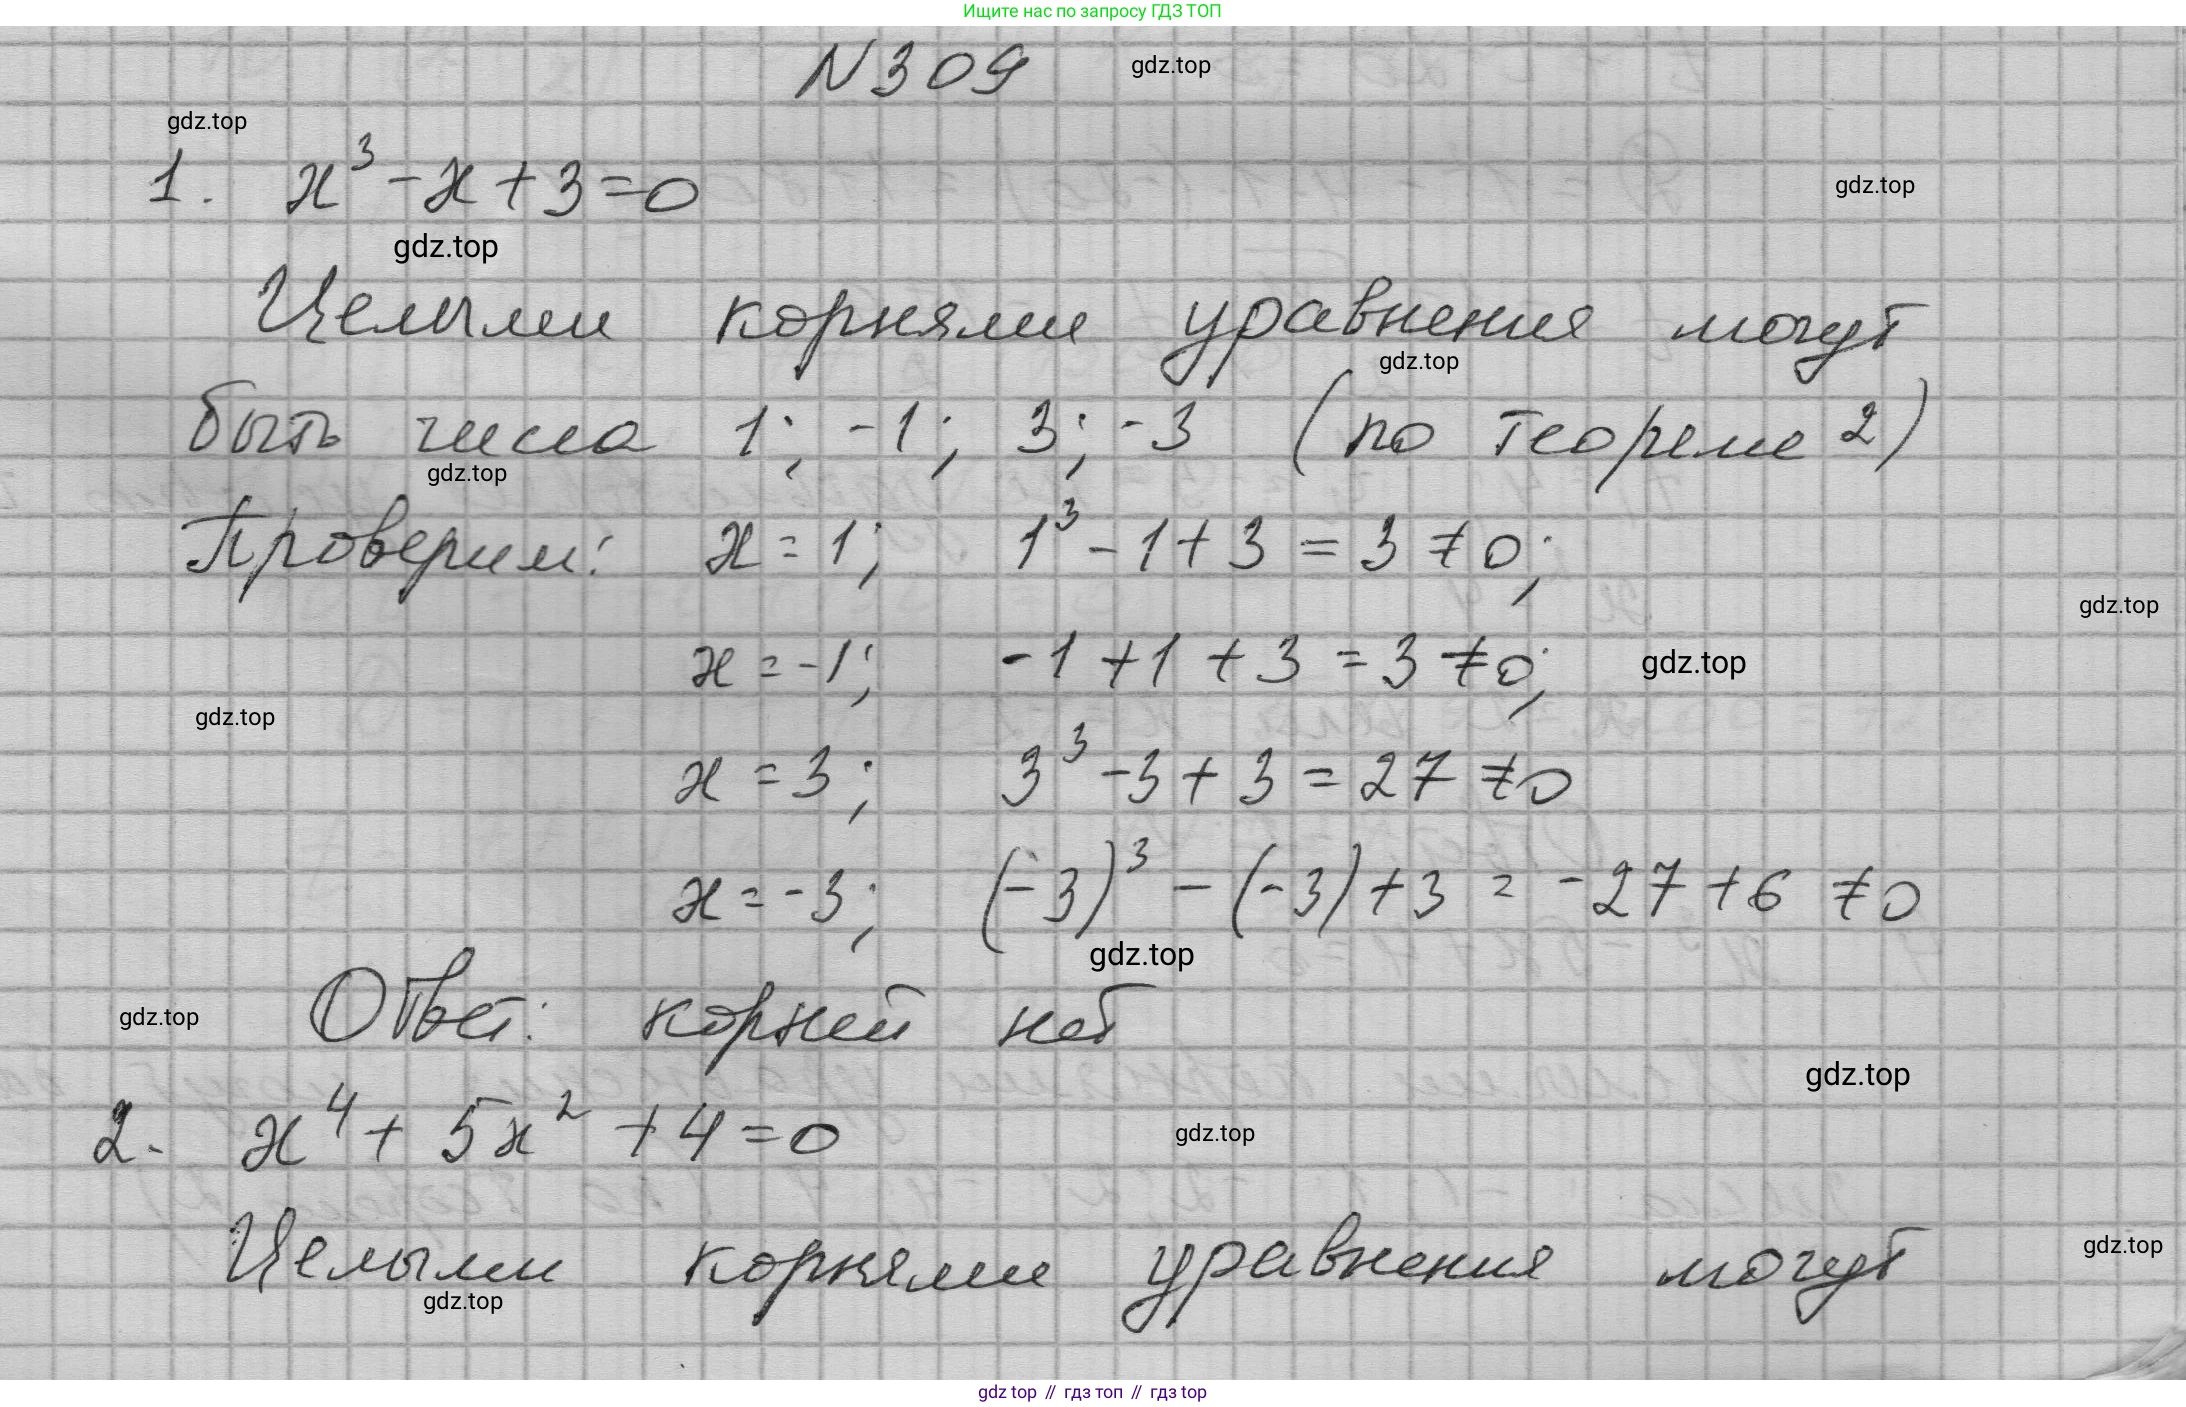 Ищите нас по запросу ГДЗ ТОП
N309
gdz.top
gdz.top
1. x³ - x + 3 = 0
gdz.top
gdz.top
Целыми корнями уравнения могут
gdz.top
быть числа 1; -1; 3; -3 (по теореме 2)
gdz.top
Проверим: x = 1; 1³ - 1 + 3 = 3 ≠ 0;
gdz.top
x = -1; -1 + 1 + 3 = 3 ≠ 0;
gdz.top
gdz.top
x = 3; 3³ - 3 + 3 = 27 ≠ 0
x = -3; (-3)³ - (-3) + 3 = -27 + 6 ≠ 0
gdz.top
Ответ: корней нет
gdz.top
gdz.top
2. x⁴ + 5x² + 4 = 0
gdz.top
Целыми корнями уравнения могут
gdz.top
gdz.top
gdz top // гдз топ // гдз top